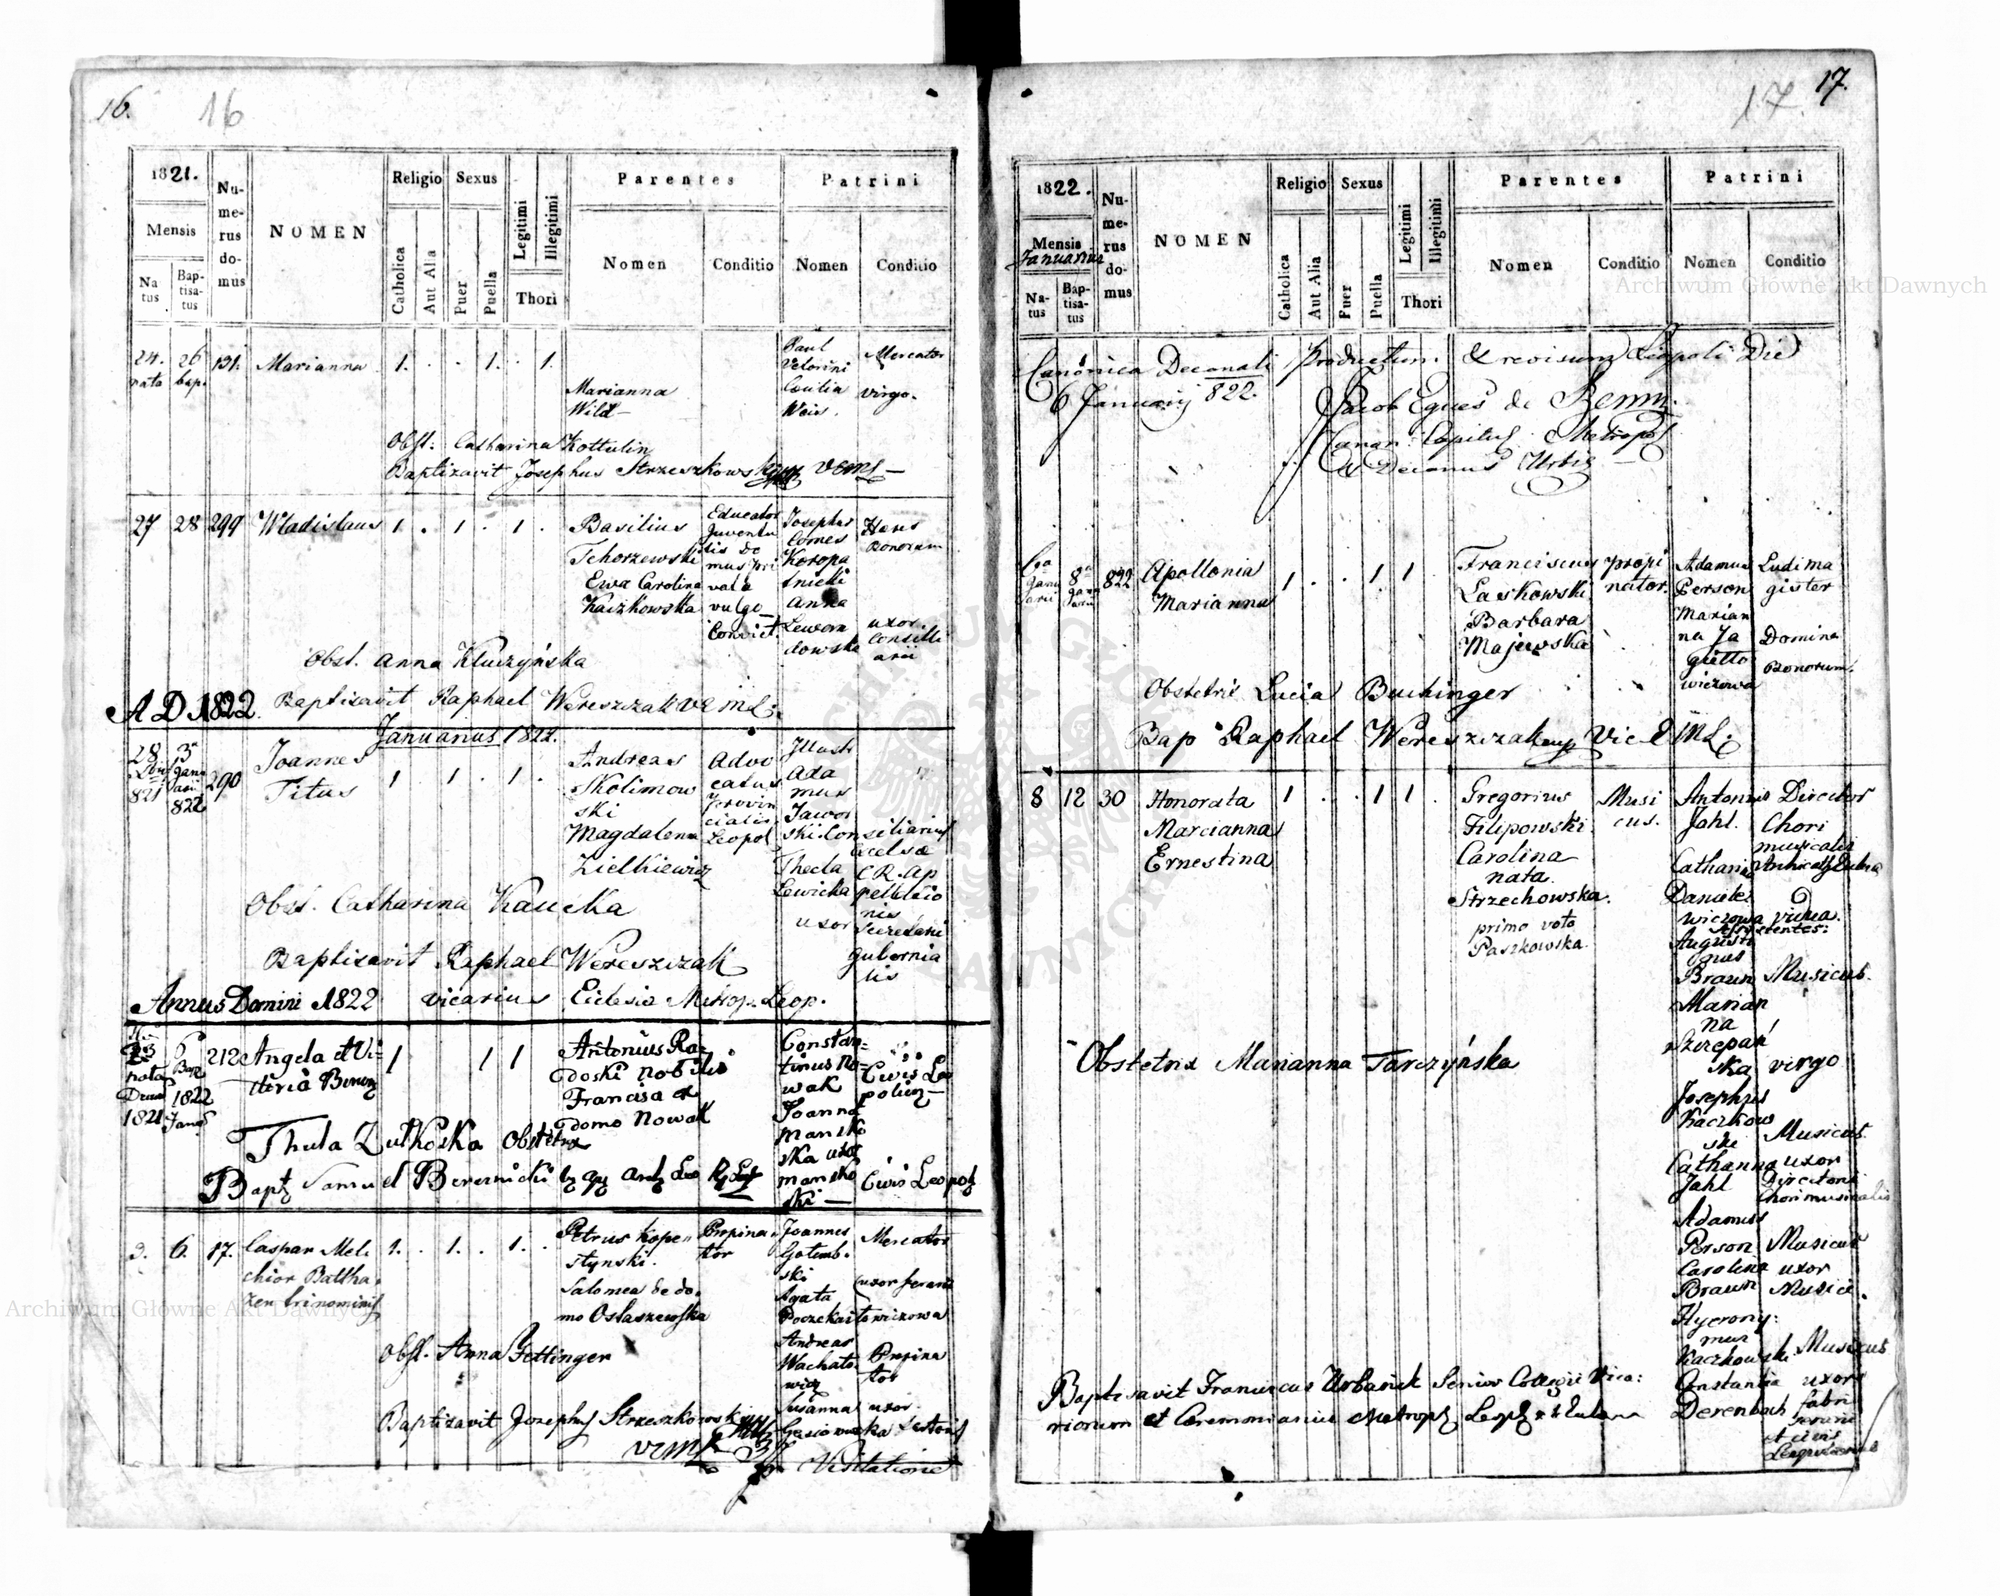 16.
16
1821.
Mensis
Na
tus
Bap-
tisa-
tus
Nu-
me-
rus
do-
mus
NOMEN
Religio
Catholica
Aut Alia
Sexus
Puer
Puella
Legitimi
Illegitimi
Thori
Parentes
Nomen
Conditio
Patrini
Nomen
Conditio
24. 26 131. Marianna 1. . . 1. . 1.
nata bap.
Marianna
Wild
Paul
Vetorini
Cecilia
Weis.
Mercator
virgo.
Obst: Catharina Kottulin
Baptizavit Josephus Strzeszkowski VEML
27 28 299 Wladislaus 1 . 1 . 1 .
Basilius
Tchorzewski
Ewa Carolina
Kaczkowska
Educator
Juventu
tis do
mus pri
vata
vulgo
Convict.
Josephus
Comes
Koropa
tnicki
Anna
Lewan
dowska
Heres
Bonorum
uxor
Consilli
arii
Obst. Anna Kluczyńska
A D 1822 Baptizavit Raphael Wereszczak VEML.
Januarius 1822.
28 3
821
Janu
arii
822
290
Joannes
Titus
1 1 . 1 .
Andreas
Skolimow
ski
Magdalena
Zielkiewicz
Advo
catus
provin
cialis
Leopol
Illustr
Ada
mus
Jawor
ski Consiliarius
Excelsæ
Thecla C.R. Ap
Lewicka pellatio
nis
uxor Secretarii
Gubernia
lis
Obst. Catharina Kaucka
Baptizavit Raphael Wereszczak
Annus Domini 1822 vicarius Eclesiæ Metrop. Leop.
nata
1821
6
Bap
1822
212 Angela et Vi
1 1 1
Antonius Ra
doski nobilis
Francisca de
domo Nowak
Constan
tinus No
wak
Joanna
Mansko
ska uxor
Mansko
ski
Civis Leo
Civis Leopol
Thecla Zutkoska Obstetrix
Bapt Samuel
3. 6. 17. Caspar Mel
chior Baltha
zer trinominis
1. . 1. . 1. .
Petrus Kope
stynski.
Salomea de do
mo Ostaszewska
Propina
tor
Joannes
Golemb
ski
Agata
Poczekaitowiczowa
Andreas
Wachato
wicz
Susanna
Mercator
uxor
Propina
tor
uxor
Obst. Anna Fettinger
Baptizavit Josephus Strzeszkowski
VEML
Visitatione
17.
17.
1822.
Mensis
Januarius
Na-
tus
Bap-
tisa-
tus
Nu-
me-
rus
do-
mus
NOMEN
Religio
Catholica
Aut Alia
Sexus
Puer
Puella
Legitimi
Illegitimi
Thori
Parentes
Nomen
Conditio
Patrini
Nomen
Conditio
Canonica Decanali productum & revisum Leopoli Die
6 Januarij 822.
Jacob Eques de Bemm
Canon: Capituli Metropol
& Decanus Urbis
6a
Janu
arii
8a
Janu
arii
822 Apollonia
Marianna
1 . . 1 1
Franciscus
Laskowski
Barbara
Majewska
propi
nator
Adamus
Person
Marian
na Ja
giełło
wiczowa
Ludima
gister
Domina
Bonorum.
Obstetrix Lucia Buchinger
Bap Raphael Wereszczak Vic E M L.
8 12 30 Honorata
Marcianna
Ernestina
1 . . 1 1 .
Gregorius
Filipowski
Carolina
nata
Strzechowska.
primo voto
Paszkowska
Musi
cus.
Antonius Director
Jahl. Chori
musicalis
Catharina
Daniele
wiczowa vidua.
Assistentes:
Augusti
nus
Braun Musicus.
Marian
na
Szczepań
ska virgo
Josephus
Kaczkow
ski Musicus
Catharina uxor
Jahl Directoris
Chori musicalis
Adamus
Person Musicus
Carolina uxor
Braun Musici.
Hyerony:
mus
Kaczkowski Musicus
Constantia uxor
Derenbach fabri
et civis
Obstetrix Marianna Tarczyńska
Baptisavit Franciscus Urbanek Senior Collegii Vica:
riorum et Ceremoniarius Metropol Leopol
Archiwum Główne Akt Dawnych
Archiwum Główne Akt Dawnych